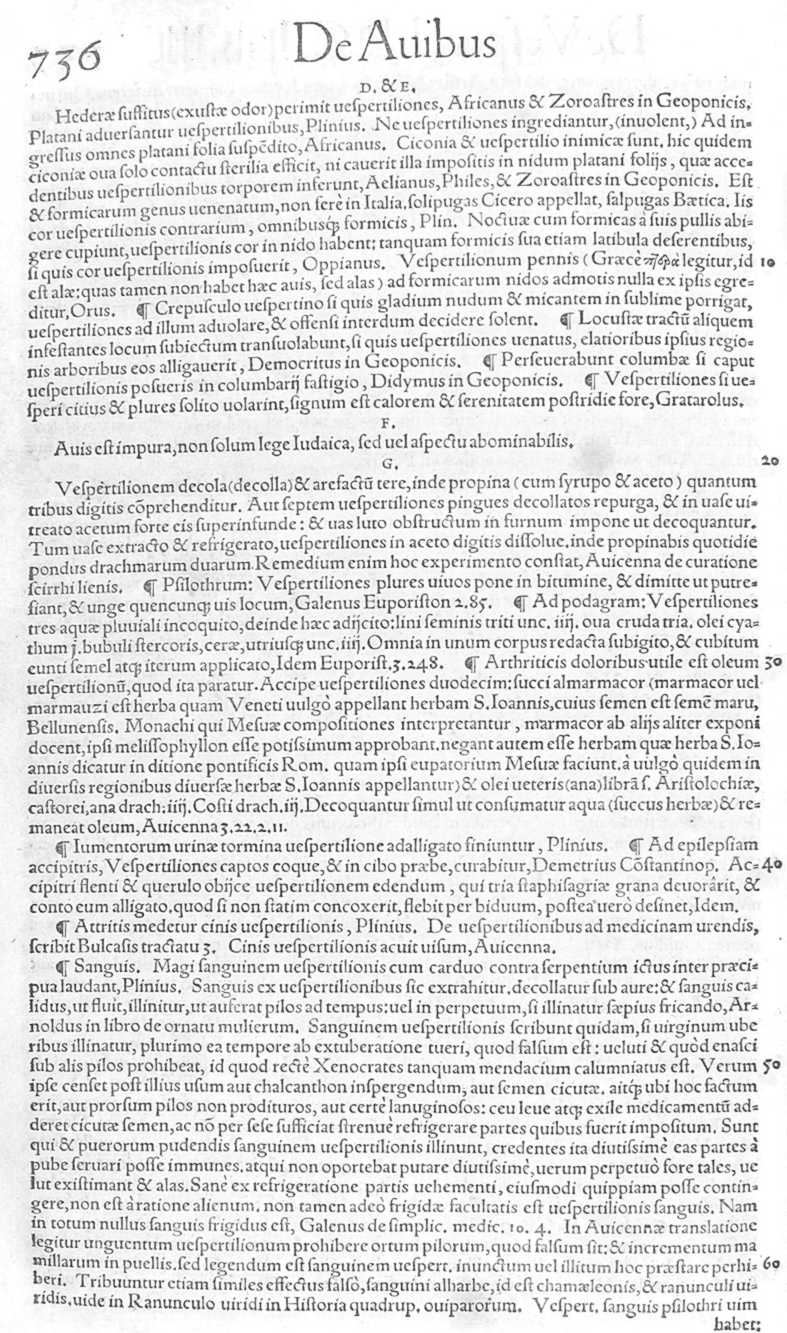 736 De Auibus
D. & E.
Hederæ ſuffitus(exuſtæ odor)perimit ueſpertiliones, Africanus & Zoroaſtres in Geoponicis.
Platani aduerſantur ueſpertilionibus,Plinius. Ne ueſpertiliones ingrediantur,(inuolent,) Ad in-
greſſus omnes platani folia ſuſpẽdito,Africanus. Ciconia & ueſpertilio inimicæ ſunt. hic quidem
ciconiæ oua ſolo contactu ſterilia efficit, ni cauerit illa impoſitis in nidum platani folijs, quæ acce-
dentibus ueſpertilionibus torporem inferunt,Aelianus,Philes,& Zoroaſtres in Geoponicis. Eſt
& formicarum genus uenenatum,non ferè in Italia,ſolipugas Cicero appellat, ſalpugas Bætica. Iis
cor ueſpertilionis contrarium, omnibusq́; formicis, Plin. Noctuæ cum formicas à ſuis pullis abi-
gere cupiunt,ueſpertilionis cor in nido habent: tanquam formicis ſua etiam latibula deſerentibus,
ſi quis cor ueſpertilionis impoſuerit, Oppianus. Veſpertilionum pennis (Græcè legitur,id 10
eſt alæ:quas tamen non habet hæc auis, ſed alas) ad formicarum nidos admotis nulla ex ipſis egre-
ditur,Orus. ¶ Crepuſculo ueſpertino ſi quis gladium nudum & micantem in ſublime porrigat,
ueſpertiliones ad illum aduolare,& offenſi interdum decidere ſolent. ¶ Locuſtæ tractũ aliquem
infeſtantes locum ſubiectum tranſuolabunt,ſi quis ueſpertiliones uenatus, elatioribus ipſius regio-
nis arboribus eos alligauerit, Democritus in Geoponicis. ¶ Perſeuerabunt columbæ ſi caput
ueſpertilionis poſueris in columbarij faſtigio, Didymus in Geoponicis. ¶ Veſpertiliones ſi ue-
ſperi citius & plures ſolito uolarint,ſignum eſt calorem & ſerenitatem poſtridie fore,Gratarolus.
F.
Auis eſt impura,non ſolum lege Iudaica, ſed uel aſpectu abominabilis.
G. 20
Veſpertilionem decola(decolla)& arefactũ tere,inde propina (cum ſyrupo & aceto) quantum
tribus digitis cõprehenditur. Aut ſeptem ueſpertiliones pingues decollatos repurga, & in uaſe ui-
treato acetum forte eis ſuperinfunde: & uas luto obſtructum in furnum impone ut decoquantur.
Tum uaſe extracto & refrigerato,ueſpertiliones in aceto digitis diſſolue.inde propinabis quotidie
pondus drachmarum duarum.Remedium enim hoc experimento conſtat,Auicenna de curatione
ſcirrhi lienis. ¶ Pſilothrum: Veſpertiliones plures uiuos pone in bitumine, & dimitte ut putre-
fiant,& unge quencunq; uis locum,Galenus Euporiſton 2.85. ¶ Ad podagram: Veſpertiliones
tres aquæ pluuiali incoquito,deinde hæc adijcito:lini ſeminis triti unc. iiij. oua cruda tria. olei cya-
thum j.bubuli ſtercoris,ceræ,utriuſq; unc.iiij.Omnia in unum corpus redacta ſubigito,& cubitum
eunti ſemel atq; iterum applicato,Idem Euporiſt.3.248. ¶ Arthriticis doloribus utile eſt oleum 30
ueſpertilionũ,quod ita paratur.Accipe ueſpertiliones duodecim:ſucci almarmacor (marmacor uel
marmauzi eſt herba quam Veneti uulgò appellant herbam S.Ioannis,cuius ſemen eſt ſemẽ maru,
Bellunenſis. Monachi qui Meſuæ compoſitiones interpretantur, marmacor ab alijs aliter exponi
docent,ipſi meliſſophyllon eſſe potiſſimum approbant.negant autem eſſe herbam quæ herba S.Io-
annis dicatur in ditione pontificis Rom. quam ipſi eupatorium Meſuæ faciunt.à uulgò quidem in
diuerſis regionibus diuerſæ herbæ S.Ioannis appellantur)& olei ueteris(ana)librã ſ. Ariſtolochiæ,
caſtorei,ana drach:iiij.Coſti drach.iij.Decoquantur ſimul ut conſumatur aqua (ſuccus herbæ)& re-
maneat oleum,Auicenna 3.22.2.11.
¶ Iumentorum urinæ tormina ueſpertilione adalligato finiuntur, Plinius. ¶ Ad epilepſiam
accipitris,Veſpertiliones captos coque,& in cibo præbe,curabitur,Demetrius Cõſtantinop. Ac- 40
cipitri flenti & querulo obijce ueſpertilionem edendum, qui tria ſtaphiſagriæ grana deuorârit, &
conto eum alligato.quod ſi non ſtatim concoxerit,flebit per biduum, poſtea uerò deſinet,Idem.
¶ Attritis medetur cinis ueſpertilionis, Plinius. De ueſpertilionibus ad medicinam urendis,
ſcribit Bulcaſis tractatu 3. Cinis ueſpertilionis acuit uiſum,Auicenna.
¶ Sanguis. Magi ſanguinem ueſpertilionis cum carduo contra ſerpentium ictus inter præci-
pua laudant,Plinius. Sanguis ex ueſpertilionibus ſic extrahitur.decollatur ſub aure:& ſanguis ca-
lidus,ut fluit,illinitur,ut auferat pilos ad tempus:uel in perpetuum,ſi illinatur ſæpius fricando,Ar-
noldus in libro de ornatu mulierum. Sanguinem ueſpertilionis ſcribunt quidam,ſi uirginum ube
ribus illinatur, plurimo ea tempore ab extuberatione tueri, quod falſum eſt: ueluti & quòd enaſci
ſub alis pilos prohibeat, id quod rectè Xenocrates tanquam mendacium calumniatus eſt. Verum 50
ipſe cenſet poſt illius uſum aut chalcanthon inſpergendum, aut ſemen cicutæ. aitq́; ubi hoc factum
erit,aut prorſum pilos non prodituros, aut certè lanuginoſos: ceu leue atq; exile medicamentũ ad-
deret cicutæ ſemen,ac nõ per ſeſe ſufficiat ſtrenuè refrigerare partes quibus fuerit impoſitum. Sunt
qui & puerorum pudendis ſanguinem ueſpertilionis illinunt, credentes ita diutiſſimè eas partes à
pube ſeruari poſſe immunes.atqui non oportebat putare diutiſſimè,uerum perpetuò fore tales, ue
lut exiſtimant & alas.Sanè ex refrigeratione partis uehementi, eiuſmodi quippiam poſſe contin-
gere,non eſt à ratione alienum. non tamen adeò frigidæ facultatis eſt ueſpertilionis ſanguis. Nam
in totum nullus ſanguis frigidus eſt, Galenus de ſimplic. medic. 10. 4. In Auicennæ translatione
legitur unguentum ueſpertilionum prohibere ortum pilorum,quod falſum ſit:& incrementum ma
millarum in puellis.ſed legendum eſt ſanguinem ueſpert. inunctum uel illitum hoc præſtare perhi- 60
beri. Tribuuntur etiam ſimiles effectus falſò,ſanguini alharbe,id eſt chamæleonis,& ranunculi ui-
ridis.uide in Ranunculo uiridi in Hiſtoria quadrup. ouiparorum. Veſpert. ſanguis pſilothri uim
habet: